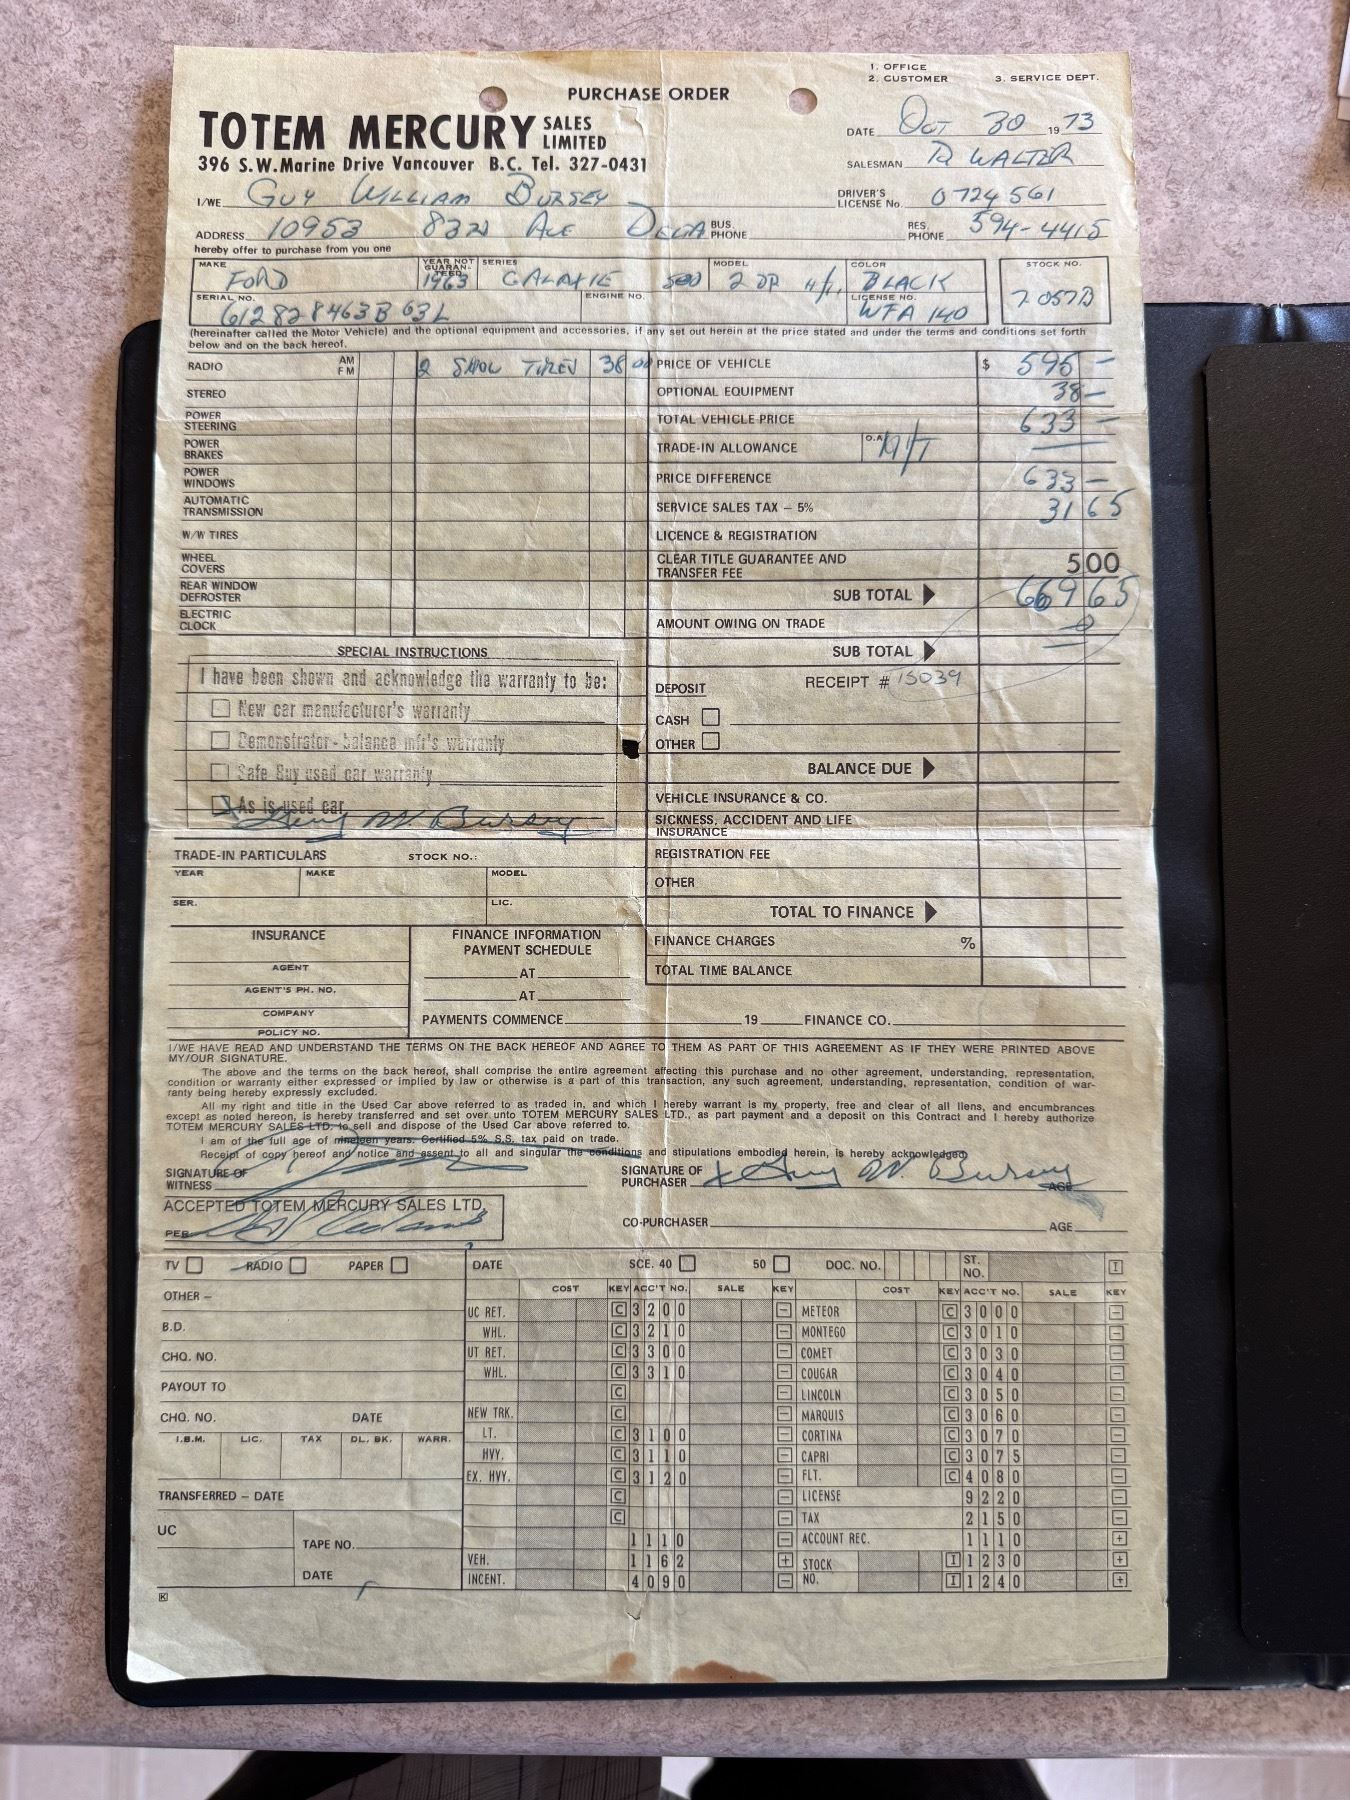 1. OFFICE
2. CUSTOMER 3. SERVICE DEPT.
PURCHASE ORDER
TOTEM MERCURY SALES LIMITED
396 S.W. Marine Drive Vancouver B.C. Tel. 327-0431
DATE Oct 30 1973
SALESMAN R WALTER
I/WE GUY WILLIAM BURSEY DRIVER'S LICENSE No. 0724561
ADDRESS 10953 82ND AVE DELTA BUS. PHONE RES. PHONE 594-4415
hereby offer to purchase from you one
MAKE YEAR NOT GUARANTEED SERIES MODEL COLOR STOCK NO.
FORD 1963 GALAXIE 500 2 DR H/T BLACK
SERIAL NO. ENGINE NO. LICENSE NO.
WFA 140
(hereinafter called the Motor Vehicle) and the optional equipment and accessories, if any set out herein at the price stated and under the terms and conditions set forth
below and on the back hereof.
RADIO AM FM 2 SNOW TIRES 38 00 PRICE OF VEHICLE $ 595 —
STEREO OPTIONAL EQUIPMENT 38 —
POWER STEERING TOTAL VEHICLE PRICE 633 —
POWER BRAKES TRADE-IN ALLOWANCE O.A. N/T —
POWER WINDOWS PRICE DIFFERENCE 633 —
AUTOMATIC TRANSMISSION SERVICE SALES TAX – 5% 31 65
W/W TIRES LICENCE & REGISTRATION
WHEEL COVERS CLEAR TITLE GUARANTEE AND TRANSFER FEE 5 00
REAR WINDOW DEFROSTER SUB TOTAL 669 65
ELECTRIC CLOCK AMOUNT OWING ON TRADE 0
SPECIAL INSTRUCTIONS SUB TOTAL
I have been shown and acknowledge the warranty to be: DEPOSIT RECEIPT # 15039
New car manufacturer's warranty CASH
Demonstrator - balance mfr's warranty OTHER
Safe Buy used car warranty BALANCE DUE
As is used car VEHICLE INSURANCE & CO.
Guy W Bursey SICKNESS, ACCIDENT AND LIFE INSURANCE
TRADE-IN PARTICULARS STOCK NO.: REGISTRATION FEE
YEAR MAKE MODEL OTHER
SER. LIC. TOTAL TO FINANCE
INSURANCE FINANCE INFORMATION PAYMENT SCHEDULE FINANCE CHARGES %
AGENT AT TOTAL TIME BALANCE
AGENT'S PH. NO. AT
COMPANY PAYMENTS COMMENCE 19 FINANCE CO.
POLICY NO.
I/WE HAVE READ AND UNDERSTAND THE TERMS ON THE BACK HEREOF AND AGREE TO THEM AS PART OF THIS AGREEMENT AS IF THEY WERE PRINTED ABOVE
MY/OUR SIGNATURE.
The above and the terms on the back hereof, shall comprise the entire agreement affecting this purchase and no other agreement, understanding, representation,
condition or warranty either expressed or implied by law or otherwise is a part of this transaction, any such agreement, understanding, representation, condition of war-
ranty being hereby expressly excluded.
All my right and title in the Used Car above referred to as traded in, and which I hereby warrant is my property, free and clear of all liens, and encumbrances
except as noted hereon, is hereby transferred and set over unto TOTEM MERCURY SALES LTD., as part payment and a deposit on this Contract and I hereby authorize
TOTEM MERCURY SALES LTD. to sell and dispose of the Used Car above referred to.
I am of the full age of nineteen years. Certified 5% S.S. tax paid on trade.
Receipt of copy hereof and notice and assent to all and singular the conditions and stipulations embodied herein, is hereby acknowledged
SIGNATURE OF WITNESS SIGNATURE OF PURCHASER x Guy W Bursey AGE
ACCEPTED TOTEM MERCURY SALES LTD.
PER CO-PURCHASER AGE
TV RADIO PAPER DATE SCE. 40 50 DOC. NO. ST. NO. I
OTHER – COST KEY ACC'T NO. SALE KEY COST KEY ACC'T NO. SALE KEY
UC RET. C 3200 – METEOR C 3000 –
B.D. WHL. C 3210 – MONTEGO C 3010 –
CHQ. NO. UT RET. C 3300 – COMET C 3030 –
WHL. C 3310 – COUGAR C 3040 –
PAYOUT TO C – LINCOLN C 3050 –
CHQ. NO. DATE NEW TRK. C – MARQUIS C 3060 –
I.B.M. LIC. TAX DL. BK. WARR. LT. C 3100 – CORTINA C 3070 –
HVY. C 3110 – CAPRI C 3075 –
EX. HVY. C 3120 – FLT. C 4080 –
TRANSFERRED – DATE C – LICENSE 9220 –
C – TAX 2150 –
UC TAPE NO. 1110 – ACCOUNT REC. 1110 +
VEH. 1162 + STOCK I 1230 +
DATE INCENT. 4090 – NO. I 1240 +
K